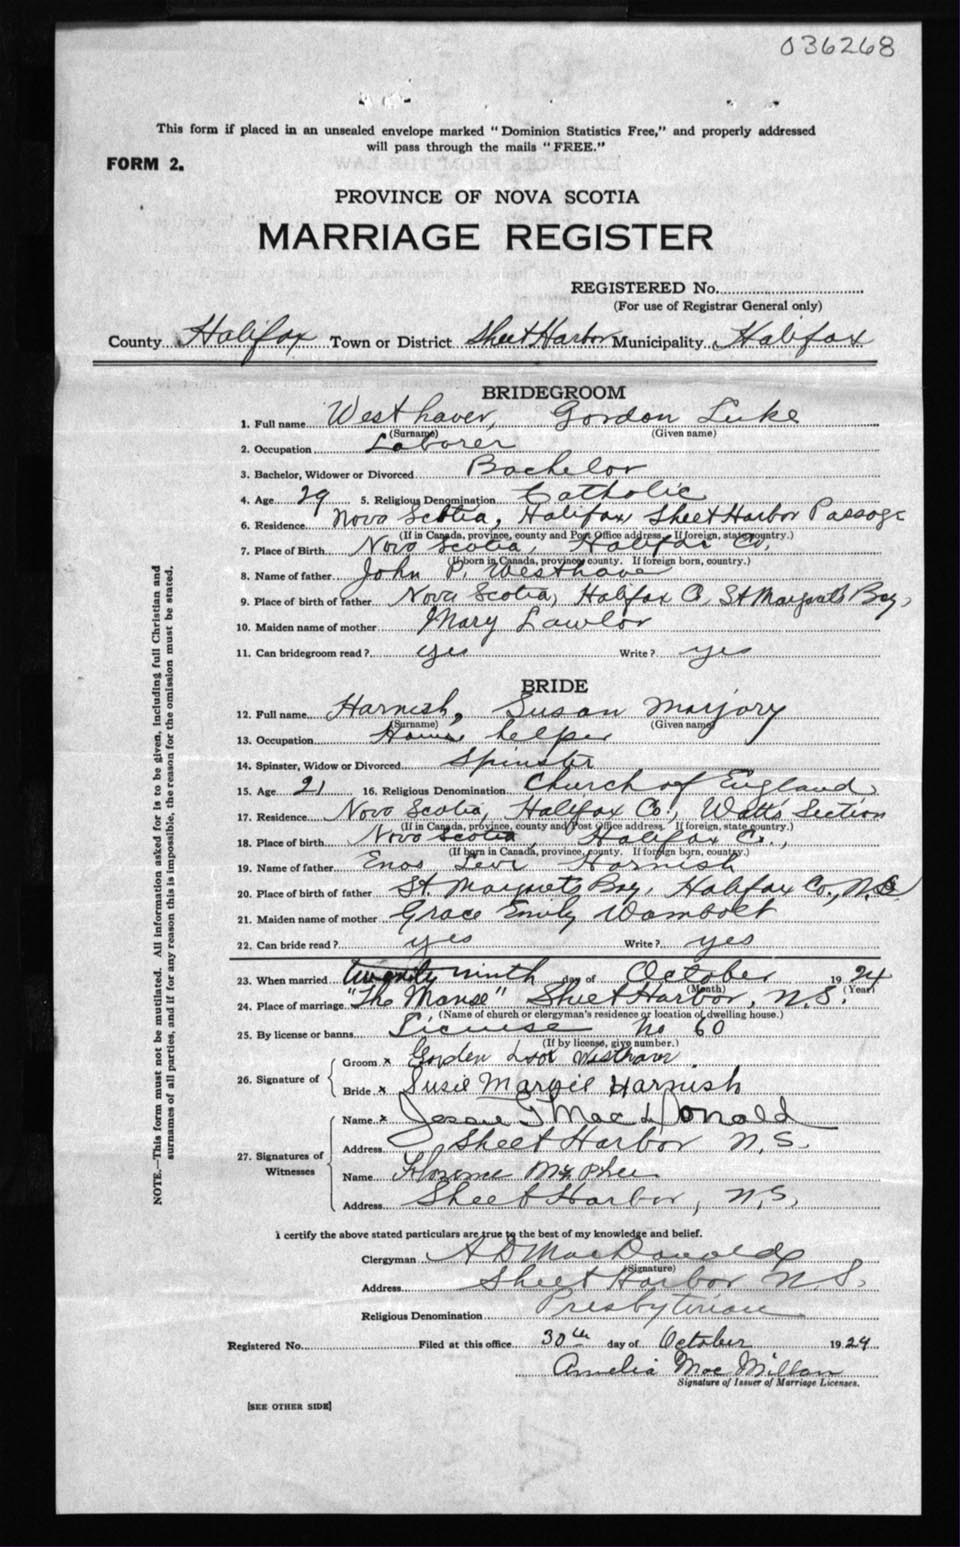 036268
This form if placed in an unsealed envelope marked "Dominion Statistics Free," and properly addressed
will pass through the mails "FREE."
FORM 2.
PROVINCE OF NOVA SCOTIA
MARRIAGE REGISTER
REGISTERED No.
(For use of Registrar General only)
County Halifax Town or District Sheet Harbor Municipality Halifax
BRIDEGROOM
1. Full name Westhaver, Gordon Luke
(Surname) (Given name)
2. Occupation Laborer
3. Bachelor, Widower or Divorced Bachelor
4. Age 29 5. Religious Denomination Catholic
6. Residence Nova Scotia, Halifax, Sheet Harbor Passage
(If in Canada, province, county and Post Office address. If foreign, state country.)
7. Place of Birth Nova Scotia, Halifax Co,
(If born in Canada, province, county. If foreign born, country.)
8. Name of father John P. Westhaver
9. Place of birth of father Nova Scotia, Halifax Co, St Margrets Bay,
10. Maiden name of mother Mary Lawlor
11. Can bridegroom read? yes Write? yes
BRIDE
12. Full name Harnish, Susan Marjory
(Surname) (Given name)
13. Occupation House helper
14. Spinster, Widow or Divorced Spinster
15. Age 21 16. Religious Denomination Church of England
17. Residence Nova Scotia, Halifax Co., Watts Section
(If in Canada, province, county and Post Office address. If foreign, state country.)
18. Place of birth Nova Scotia, Halifax Co.,
(If born in Canada, province, county. If foreign born, country.)
19. Name of father Enos Levi Harnish
20. Place of birth of father St. Margrets Bay, Halifax Co., N.S.
21. Maiden name of mother Grace Emily Wambolt
22. Can bride read? yes Write? yes
23. When married twenty ninth day of October 1924
(Month) (Year)
24. Place of marriage "The Manse" Sheet Harbor, N.S.
(Name of church or clergyman's residence or location of dwelling house.)
25. By license or banns License No 60
(If by license, give number.)
26. Signature of
Groom x Gorden Westhaver
Bride x Susie Margie Harnish
27. Signatures of Witnesses
Name x Jessie T MacDonald
Address Sheet Harbor N.S.
Name Florence McPhee
Address Sheet Harbor, N.S.
I certify the above stated particulars are true to the best of my knowledge and belief.
Clergyman A D MacDonald
(Signature)
Address Sheet Harbor N.S.
Religious Denomination Presbyterian
Registered No. Filed at this office 30th day of October 1924
Amelia MacMillan
Signature of Issuer of Marriage Licenses.
[SEE OTHER SIDE]
NOTE.—This form must not be mutilated. All information asked for is to be given, including full Christian and
surnames of all parties, and if for any reason this is impossible, the reason for the omission must be stated.